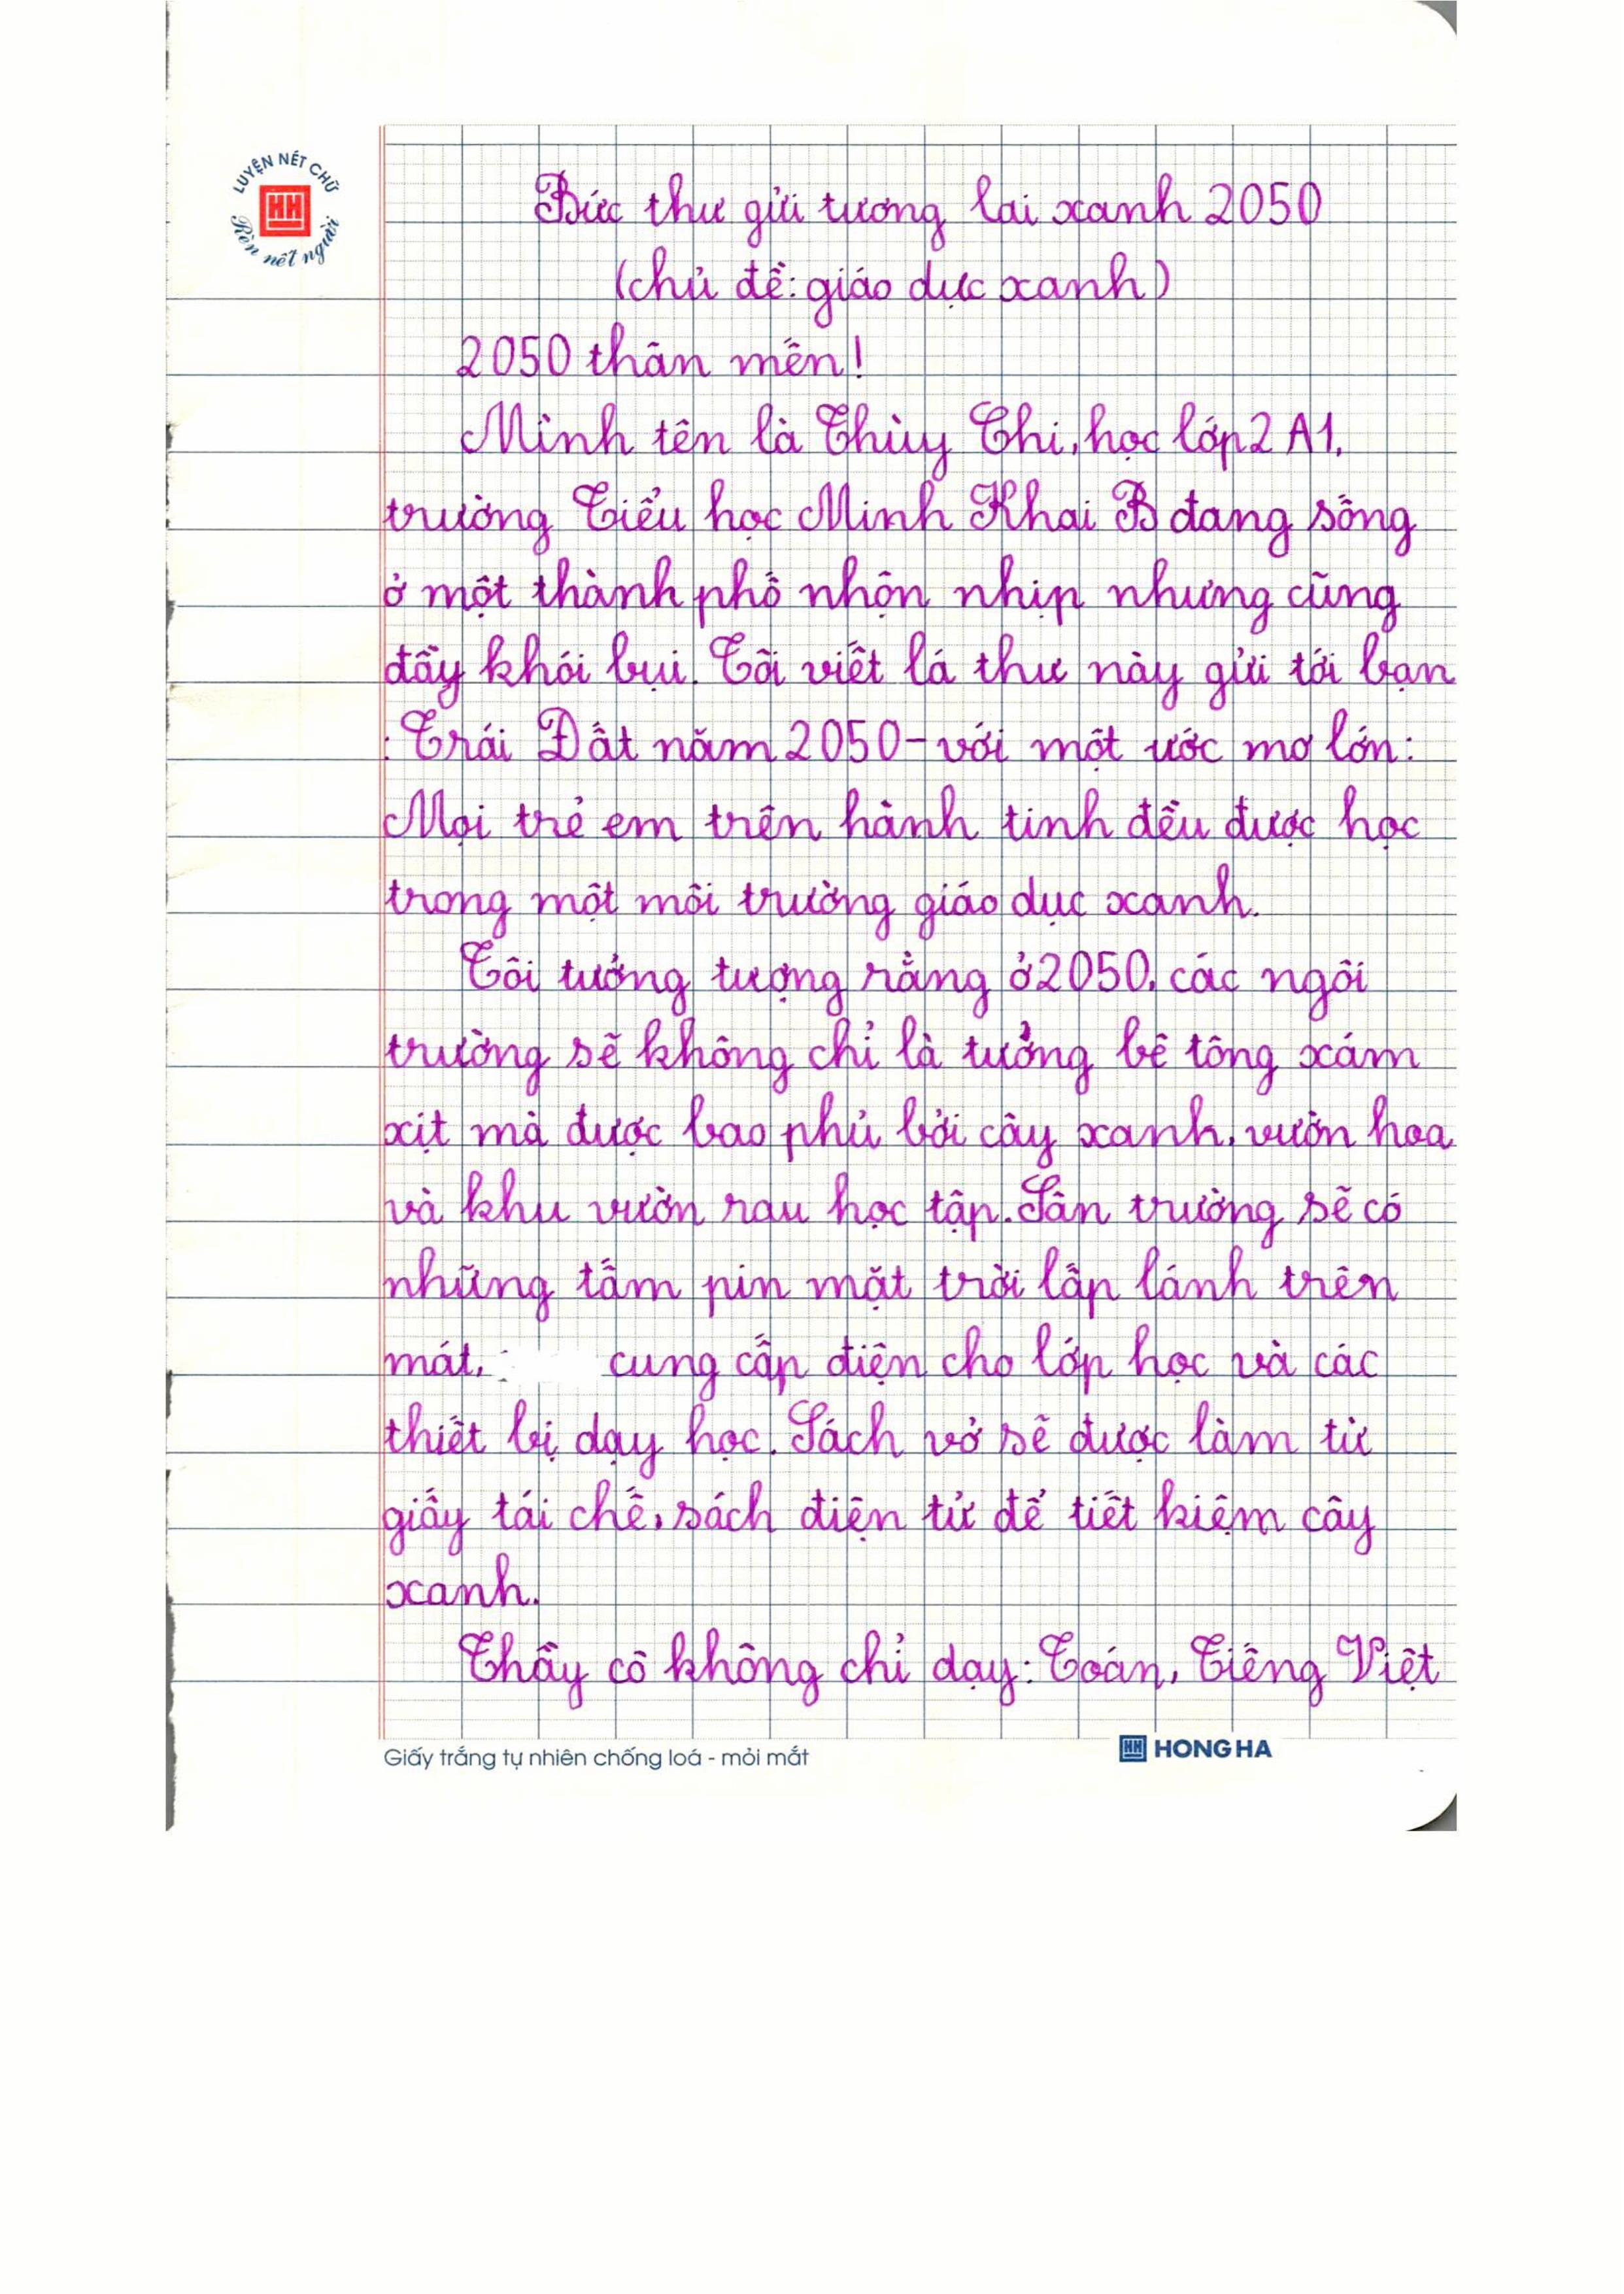 LUYỆN NÉT CHỮ
Rèn nết người
Bức thư gửi tương lai xanh 2050
(chủ đề: giáo dục xanh)
2050 thân mến!
Mình tên là Thùy Chi, học lớp 2 A1,
trường Tiểu học Minh Khai B đang sống
ở một thành phố nhộn nhịp nhưng cũng
đầy khói bụi. Tôi viết lá thư này gửi tới bạn
: Trái Đất năm 2050 - với một ước mơ lớn:
Mọi trẻ em trên hành tinh đều được học
trong một môi trường giáo dục xanh.
Tôi tưởng tượng rằng ở 2050, các ngôi
trường sẽ không chỉ là tưởng bê tông xám
xịt mà được bao phủ bởi cây xanh, vườn hoa
và khu vườn rau học tập. Sân trường sẽ có
những tấm pin mặt trời lấp lánh trên
mát, cung cấp điện cho lớp học và các
thiết bị dạy học. Sách vở sẽ được làm từ
giấy tái chế, sách điện tử để tiết kiệm cây
xanh.
Thầy cô không chỉ dạy: Toán, Tiếng Việt
Giấy trắng tự nhiên chống loá - mỏi mắt
HONG HA